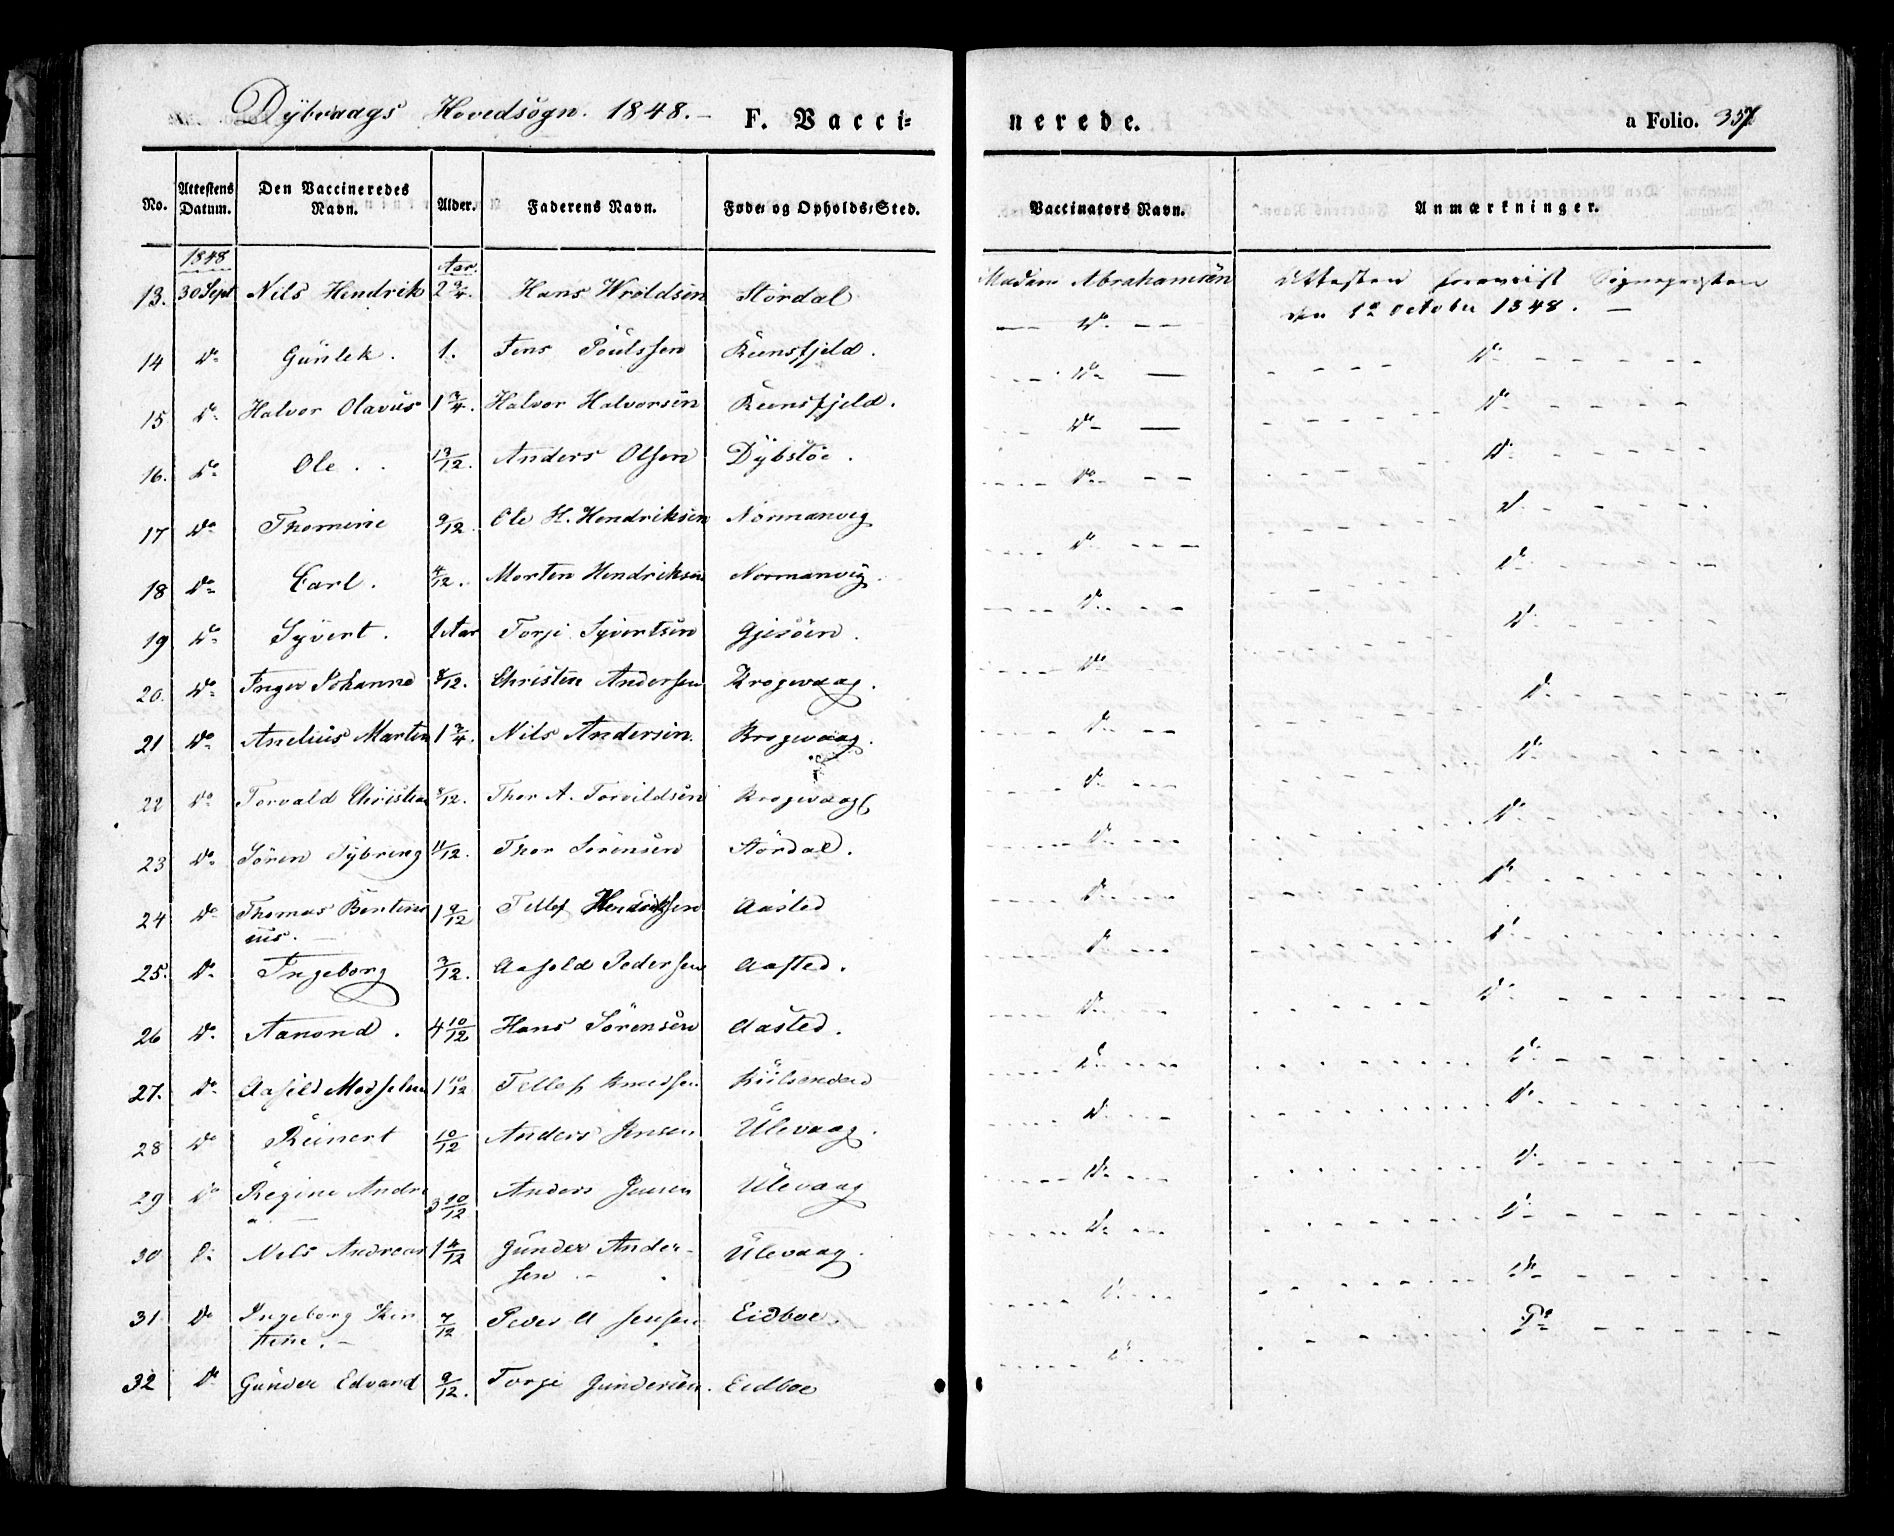 Dÿbvaags Hovedsogn. 1848. – F. Vacci= nerede. a Folio. 357
No. Attestens Datum. Den Vaccineredes Navn. Alder. Faderens Navn. Føde= og Opholds=Sted. Vaccinators Navn. Anmærkninger.
1848 Aar.
13. 30 Sept Nils Hendrik 2 3/4. Hans Wroldsen Stordal Madam Abrahamsen Attesten foreviist Sognepresten
den 1e October 1848. —
14 Do Gunlek. 1. Jens Poulssen Reensfjeld. Do Do
15 Do Halvor Olavus 1 3/4. Halvor Halvorsen Reensfjeld. Do Do
16. Do Ole. 13/12. Anders Olsen Dÿbsløe. Do Do
17 Do Thomine 9/12. Ole H. Hendriksen Normanvig Do Do
18 Do Carl. 4/12. Morten Hendriksen Normanvig. Do Do
19 Do Syvert. 1 Aar Torje Syvertsen Gjesöen. Do Do
20. Do Inger Johanne 8/12. Christen Andersen Krogevaag. Do Do
21 Do Anelius Martin 1 3/4. Nils Andersen. Krogevaag. Do Do
22 Do Torvald Christian 8/12. Thor A. Torvildsen Krogevaag Do Do
23 Do Sören Sybreng 11/12. Thor Sörensen Stördal. Do Do
24 Do Thomas Bentini 1 9/12 Tellef Hendriksen Aasted Do Do
us. —
25. Do Ingeborg 3/12. Aasold Pedersen Aasted. Do Do
26 Do Aanond. 4 10/12 Hans Sörensen Aasted. Do Do
27. Do Aasild 1 10/12 Tellef Knudsen Do Do
28 Do Reinert 10/12 Anders Jensen Ulevaag. Do Do
29 Do Regine Andre 3 10/12 Anders Jensen Ulevaag Do Do
a —
30 Do Nils Andreas 1 4/12 Gunder Ander- Ulevaag. Do Do
sen. –
31 Do Ingeborg Kir 7/12 Peder A Jensen Eidboe. Do Do
stine. –
32 Do Gunder Edvard 9/12. Torje Gundersen. Eidboe Do Do